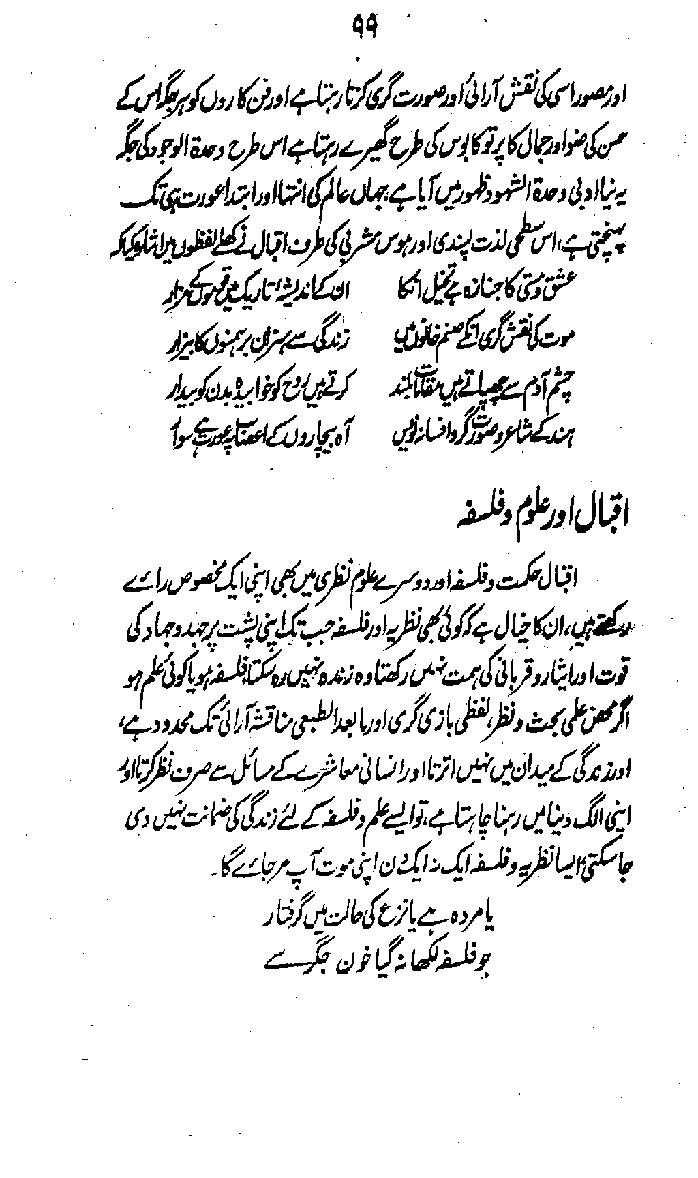 ۹۹
اور مصور اسی کی نقش آرائی اور صورت گری کرتا رہتا ہے اور فن کاروں کو ہر جگہ اس کے
حسن کی ضو اور جمال کا پرتو کابوس کی طرح گھیرے رہتا ہے اس طرح وحدۃ الوجود کی جگہ
یہ نیا ادبی وحدۃ الشہود ظہور میں آیا ہے، جہاں عالم کی انتہا اور ابتدا عورت ہی تک
پہنچتی ہے، اس سطحی لذت پسندی اور ہوس مشربی کی طرف اقبال نے کھلے لفظوں میں اشارہ کیا کہ
عشق و مستی کا جنازہ ہے تخیل انکا ان کے اندیشۂ تاریک میں قوموں کے مزار
موت کی نقش گری انکے صنم خانوں میں زندگی سے ہنر ان برہمنوں کا بیزار
چشم آدم سے چھپاتے ہیں مقامات بلند کرتے ہیں روح کو خوابیدہ بدن کو بیدار
ہند کے شاعر و صورت گر و افسانہ نویس آہ بیچاروں کے اعصاب پہ عورت ہے سوار
اقبال اور علوم و فلسفہ
اقبال حکمت و فلسفہ اور دوسرے علوم نظری میں بھی اپنی ایک مخصوص رائے
رکھتے ہیں، ان کا خیال ہے کہ کوئی بھی نظریہ اور فلسفہ جب تک اپنی پشت پر جہد و جہاد کی
قوت اور ایثار و قربانی کی ہمت نہیں رکھتا وہ زندہ نہیں رہ سکتا، فلسفہ ہو یا کوئی علم ہو
اگر محض علمی بحث و نظر، لفظی بازی گری اور مابعد الطبعی مناقشہ آرائی تک محدود ہے،
اور زندگی کے میدان میں نہیں اترتا اور انسانی معاشرے کے مسائل سے صرف نظر کرتا اور
اپنی الگ دنیا میں رہنا چاہتا ہے، تو ایسے علم و فلسفہ کے لئے زندگی کی ضمانت نہیں دی
جا سکتی، ایسا نظریہ و فلسفہ ایک نہ ایک دن اپنی موت آپ مر جائے گا۔
یا مردہ ہے یا نزع کی حالت میں گرفتار
جو فلسفہ لکھا نہ گیا خون جگر سے